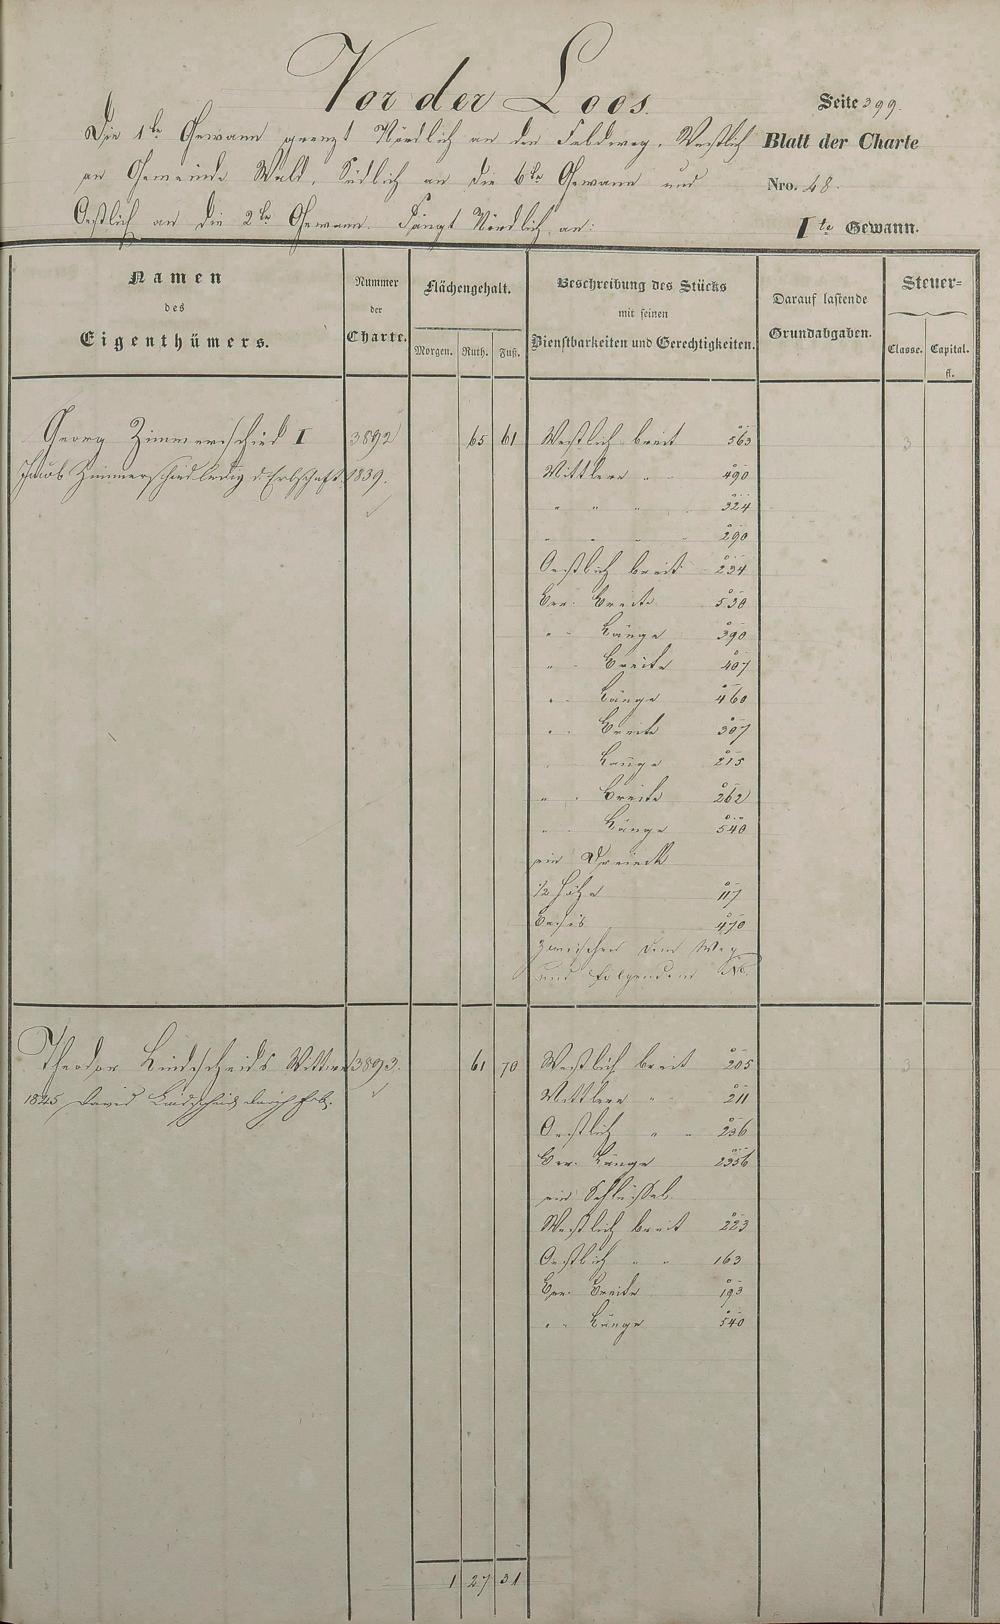 Vor der Loos.
Seite 399.
Die 1te Gewann grenzt Nördlich an den Feldweg, Westlich
Blatt der Charte
an Gemeinde Wald, Südlich an die 6te Gewann und
Nro. 48.
Oestlich an die 2te Gewann. Fängt Nördlich an:
Ite Gewann.
Namen
des
Eigenthümers.
Nummer
der
Charte.
Flächengehalt.
Morgen. Ruth. Fuß.
Beschreibung des Stücks
mit seinen
Dienstbarkeiten und Gerechtigkeiten.
Darauf lastende
Grundabgaben.
Steuer=
Classe. Capital.
fl.
Georg Zimmerschied I 3892 65 61 Westlich breit 563 3
Jacob Zimmerschied ledig d. Erbschaft 1839. Mittlere " 490
" " " 324
" " " 290
Oestlich breit 234
Cor. Breite 530
" Länge 390
" Breite 407
" Länge 460
" Breite 307
Länge 215
" Breite 262
" Länge 540
ein Dreieck
1/2 Höhe 117
Basis 470
Zwischen dem Weg
und folgendem No.
Theodor Lindscheids Wittwe 3893. 61 70 Westlich breit 205 3
1845 David Lindscheid durch Erb. Mittlere " 211
Oestlich " " 236
Cor. Länge 2356
ein Schlüssel
Westlich breit 223
Oestlich " " 163
Cor. Breite 193
" " Länge 540
1 27 31